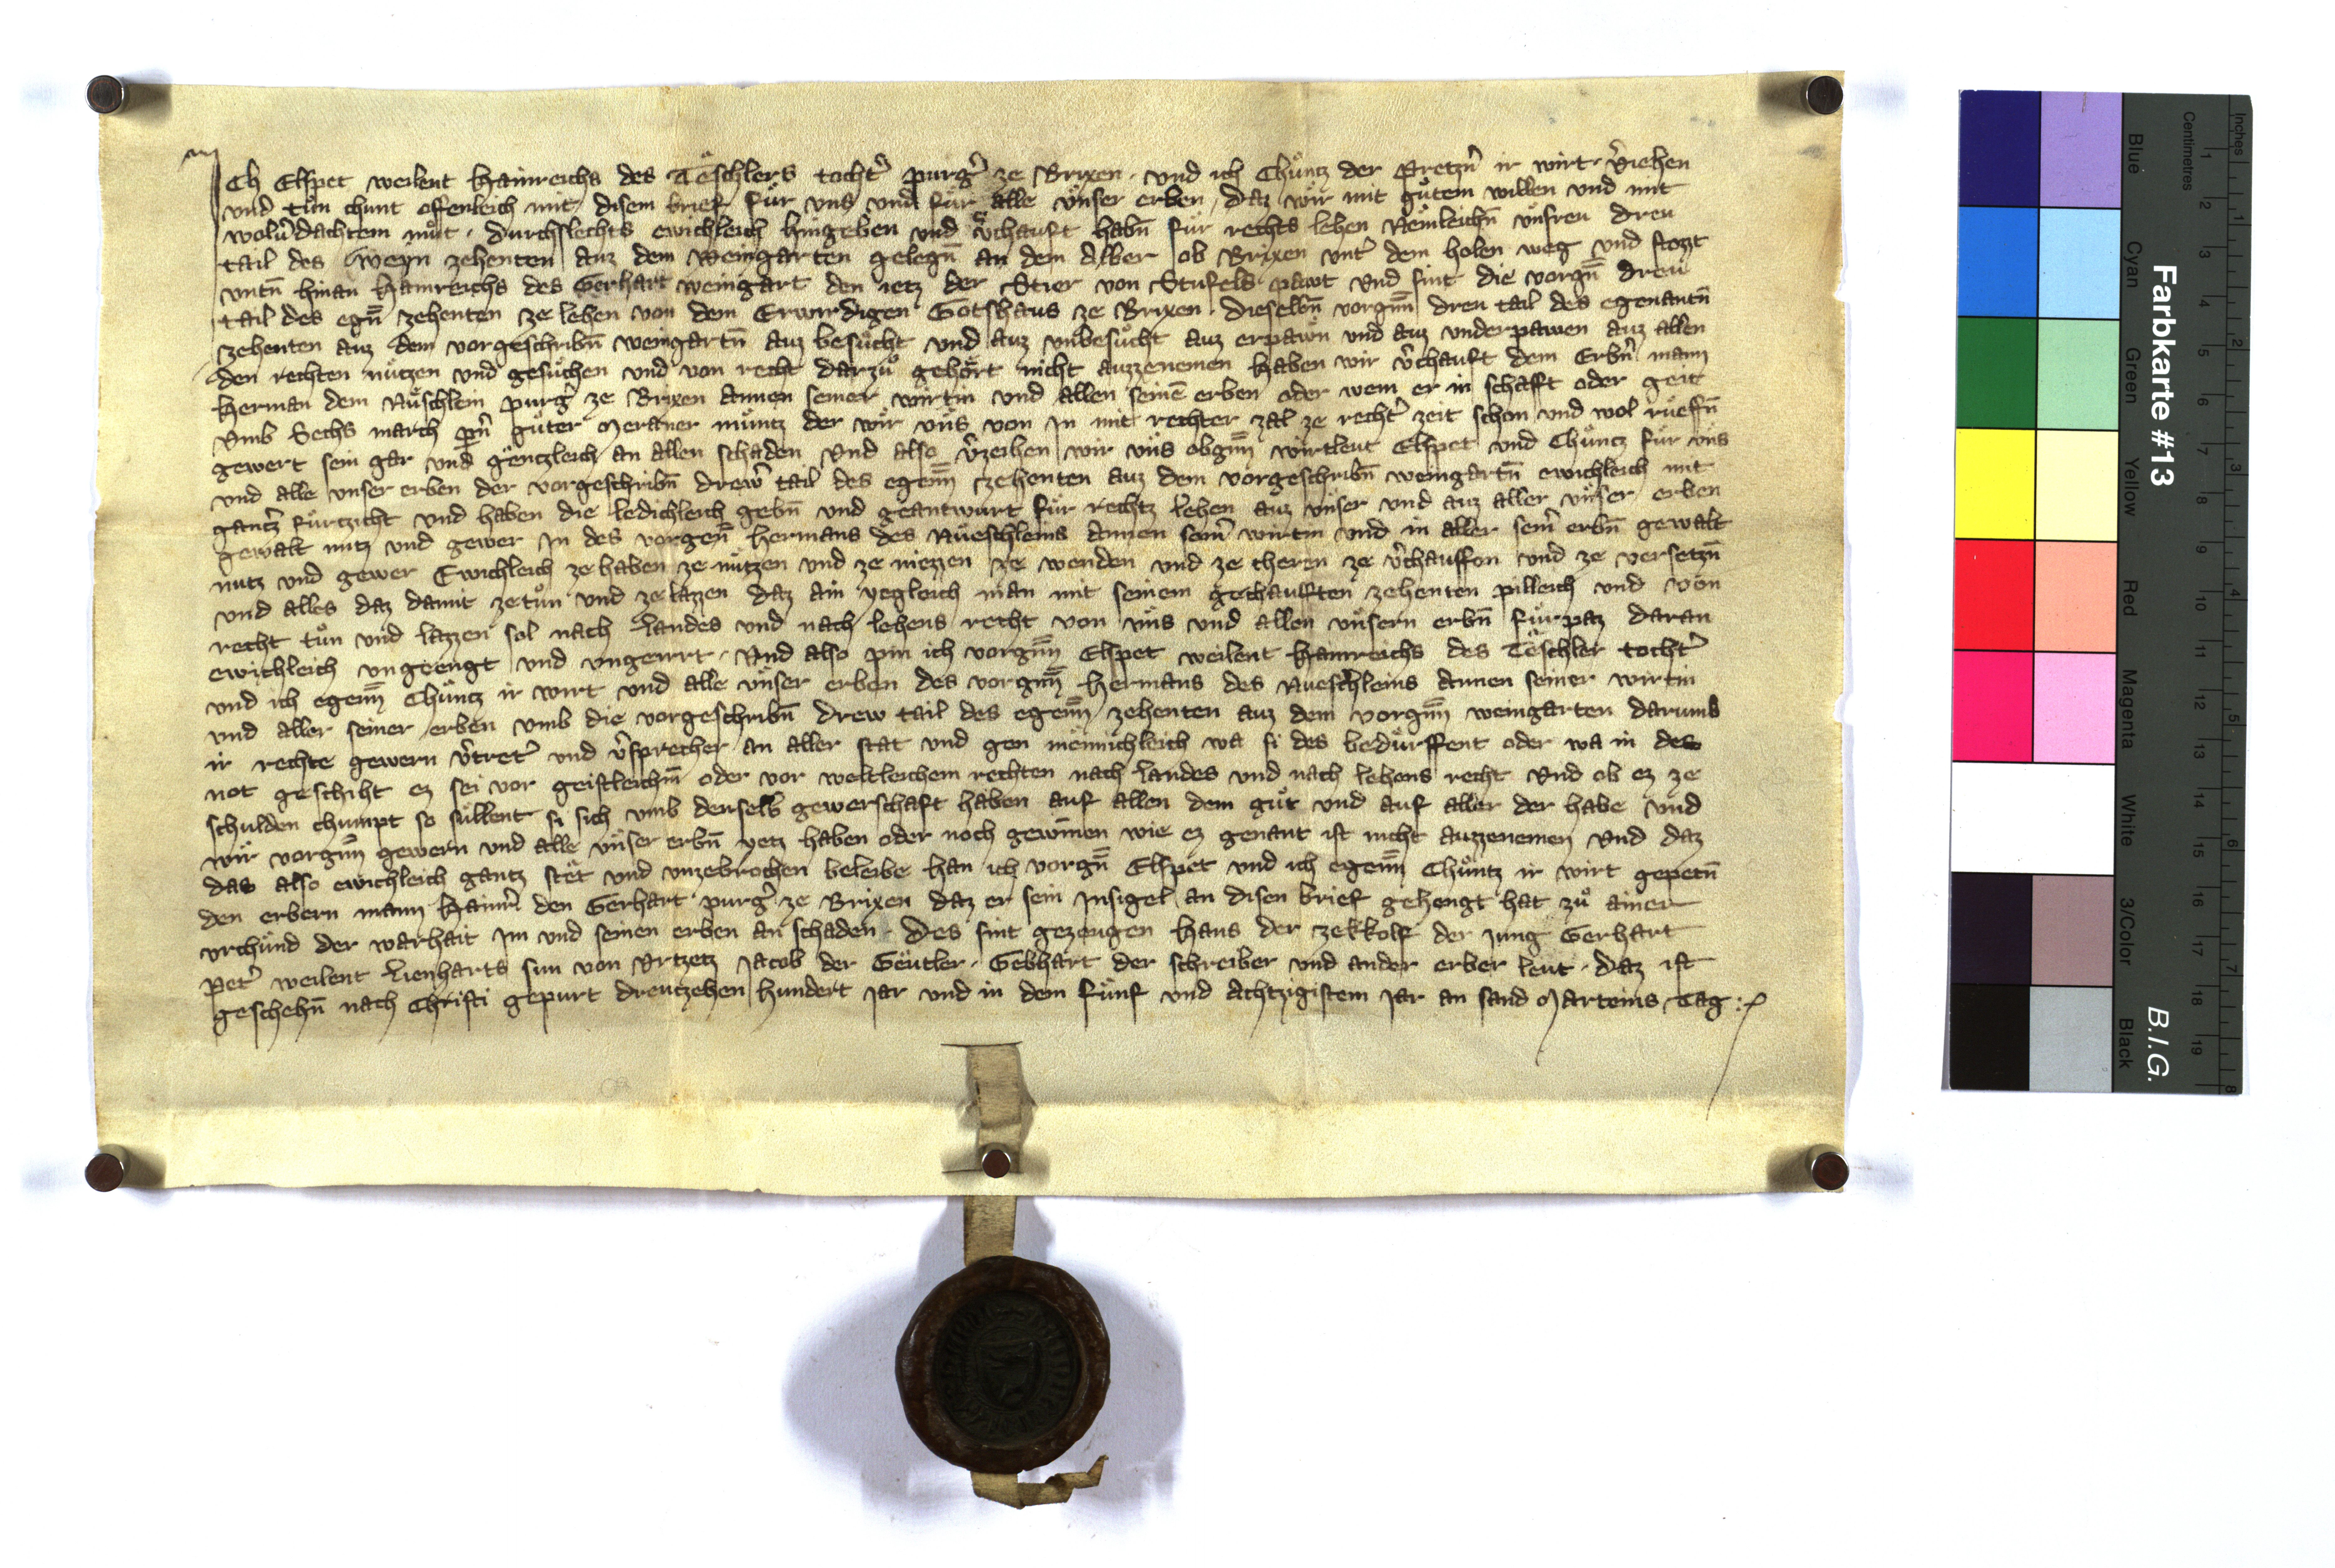 Ich Elspet weilent Hainreichs des Teͤschlers tocht᷑ purg᷑ ze Brixen · vnd ich Chuͤntz der Pretzn᷑ ir wirt · v᷑iehen
vnd tuͦn chunt offenleich mit disem brief fuͤr vns vnd fuͤr alle vnser erben , daz wir mit guͦtem willen vnd mit
wolv᷑dachtem muͦt · durchslechts ewichleich hingeben vnd v᷑chauft habn̄ fuͤr rechts lehen Nemleichn̄ vnsreu dreu
tail des Weyn zehenten auz dem weingarten gelegn̄ an dem Alber ob Brixen vnt᷑ dem holen weg vnd stozzt
vntn̄ hinan Hainreichs des Gerhart weingart den ietz der Stier von Stufels pawt Vnd sint die vorgn̄ dreu
tail des egn̄ zehenten ze lehen von dem Erwirdigen Gotshaus ze Brixen · dieselbn̄ vorgnn̄ dreu tail des egenantn̄
zehenten auz dem vorgeschribn̄ weingartn̄ auz besuͦcht vnd auz vnbesuͦcht auz erpawn vnd auz vnderpawen auz allen
den rechten nuͤtzen vnd gesuͤchen vnd von recht darzuͦ gehoͤrt nicht auzzenemen haben wir v᷑chauft dem Erbn᷑ mann
Herman dem Ruͤschlein purg᷑ ze Brixen Annen seiner wirtin vnd allen seinē erben oder wem er in schafft oder geit
Vmb Sechs march pn᷑ guͦter Meraner muͤntz der wir vns von In mit rechter zal ze recht᷑ zeit schon vnd wol rueffn̄
gewert sein gar vnd gentzleich an allen schaden Vnd also v᷑zeihen wir vns obgnn̄ wirtleut Elspet vnd Chuͤntz fuͤr vns
vnd alle vnser erben der vorgeschribn̄ drew᷑ tail des egenn̄ zehenten auz dem vorgeschribn̄ weingartn̄ ewichleich mit
gantz᷑ fuͤrtzicht vnd haben die ledichleich gebn̄ vnd geantwurt fuͤr rechtz lehen auz vnser vnd auz aller vnser erben
gewalt nutz vnd gewer In des vorgen̄ Hermans des Rueschleins Annen sein᷑ wirtin vnd in aller sein᷑ erbn̄ gewalt
nutz vnd gewer Ewichleich ze haben ze nuͤtzen vnd ze niezzen ze wenden vnd ze cheren ze v᷑chauffen vnd ze versetzn̄
vnd alles daz damit zetuͦn vnd zelazzen daz ain yegleich man mit seinem gechaufften zehenten pilleich vnd von
recht tuͦn vnd lazzen sol nach Landes vnd nach lehens recht von vns vnd allen vnsern erbn̄ fuͤrpaz daran
ewichleich vngeengt vnd vngeirrt · Vnd also pin ich vorgnn̄ Elspet weilent Hainreichs des Teͤschler tocht᷑
vnd ich egenn̄ Chuͤntz ir wirt vnd alle vnser erben des vorgnn̄ Hermans des Rueschleins Annen seiner wirtin
vnd aller seiner erben vmb die vorgeschribn̄ drew tail des egenn̄ zehenten auz dem vorgnn̄ weingarten darumb
ir rechte gewern v᷑tret᷑ vnd v᷑sprecher an aller stat vnd gen meͤnnichleich wa si des beduͤrffent oder wa in des
not geschiht ez sei vor geistleichm̄ oder vor weltleichem rechten nach Landes vnd nach lehens recht Vnd ob ez ze
schulden chuͤmpt so suͤllent si sich vmb denselb᷑ gewerschaft haben auf allen dem guͦt vnd auf aller der habe vnd
wir vorgnn̄ gewern vnd alle vnser erbn̄ yetz haben oder noch gewīnen wie ez genant ist nicht auzzenemen Vnd daz
das also ewichleich gantz steͤt vnd vnzebrochen beleibe han ich vorgn̄ Elspet vnd ich egenn̄ Chuͤntz ir wirt gepetn̄
den erbern mann Hainr᷑ den Gerhart purg᷑ ze Brixen daz er sein Insigel an disen brief gehengt hat zuͦ ainer
vrchuͤnd der warhait Im vnd seinen erben an schaden · Des sint gezeugen Hans der Zekkolf der Jung Gerhart
Pet᷑ weilent Lienharts sun von Vrtzetz Jacob der Geutler · Gebhart der schreiber vnd ander erber leut · Daz ist
geschehn̄ nach Christi gepurt dreutzehen hundert Jar vnd in dem fuͤnf vnd Achtzigistem Jar an sand Marteins Tag :
Farbkarte #13
B.I.G.
Blue Cyan Green Yellow Red Magenta White 3/Color Black
Centimetres 1 2 3 4 5 6 7 8 9 10 11 12 13 14 15 16 17 18 19
Inches 1 2 3 4 5 6 7 8